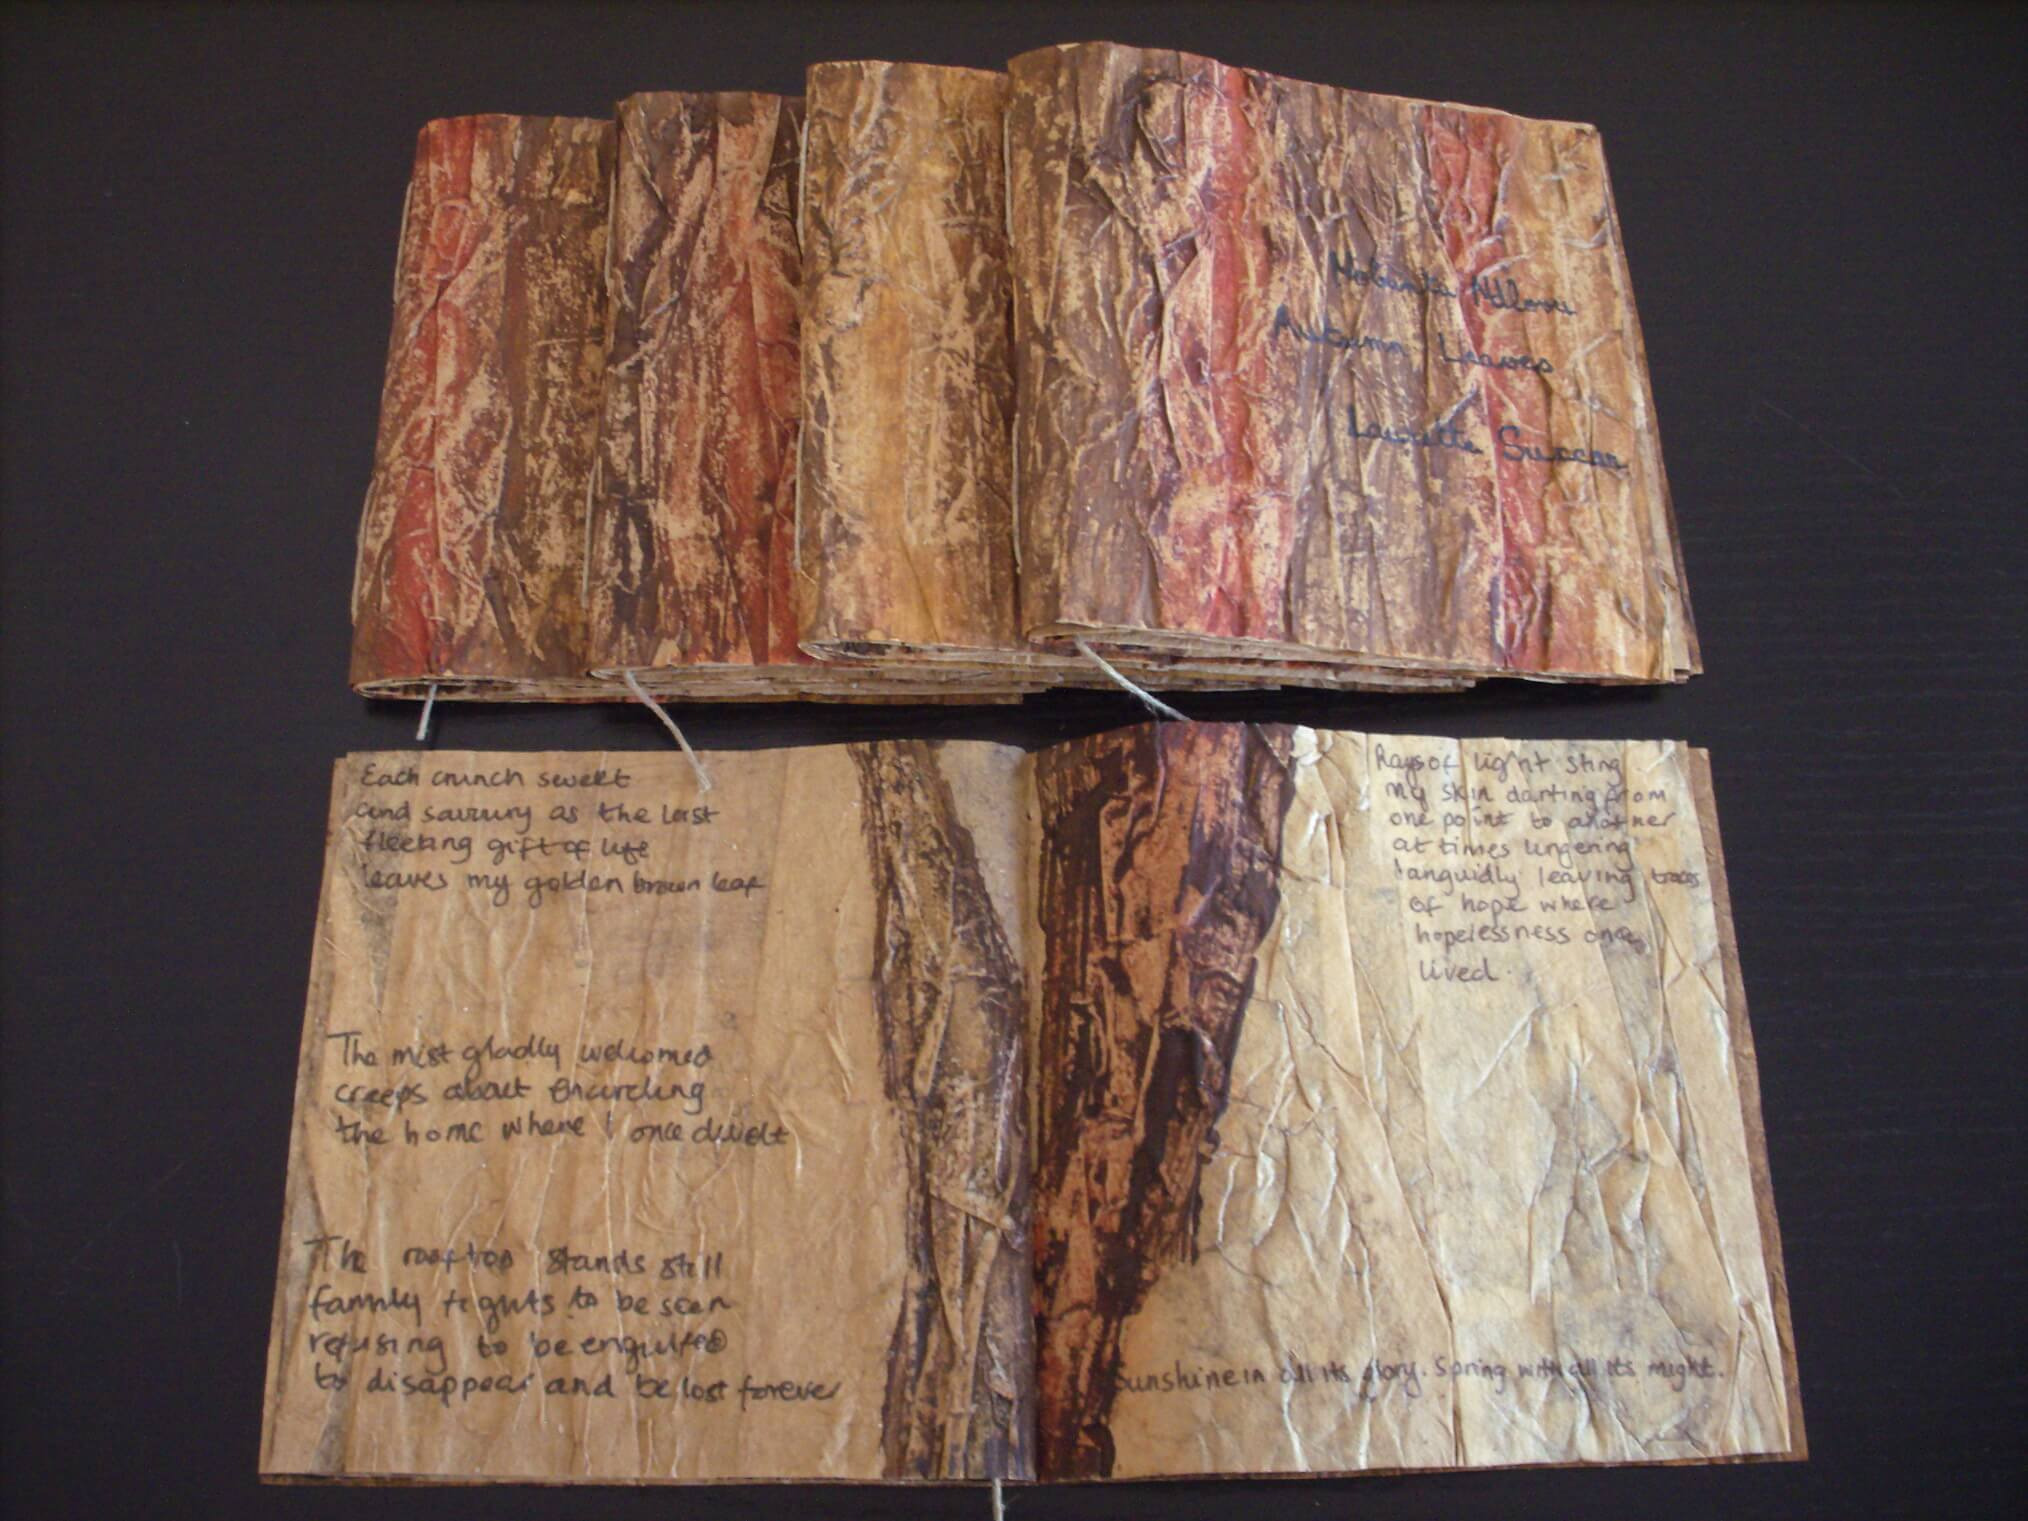 Ndlovu
Autumn Leaves
Laurette Succar
Each crunch sweet
and savoury as the last
fleeting gift of life
leaves my golden brown leaf
The mist gladly welcomed
creeps about encircling
the home where I once dwelt
The rooftop stands still
family fights to be seen
refusing to be engulfed
to disappear and be lost forever
Rays of light sting
my skin darting from
one point to another
at times lingering
languidly leaving traces
of hope where
hopelessness once
lived.
Sunshine in all its glory. Spring with all its might.